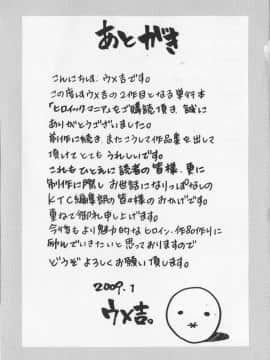 あとがき
こんにちは、ウメ吉です。
この度はウメ吉の2作目となる単行本
「ヒロイックマニア」をご購読頂き、誠に
ありがとうございました。
前作に続き、またこうして作品集を出して
頂けてとてもうれしいです。
これもひとえに読者の皆様、更に
制作に際しお世話になりっぱなしの
KTC編集部の皆々様のおかげです。
重ねて御礼申し上げます。
今後もより魅力的なヒロイン、作品作りに
励んでいきたいと思っておりますので
どうぞよろしくお願い致します。
2009.1
ウメ吉。